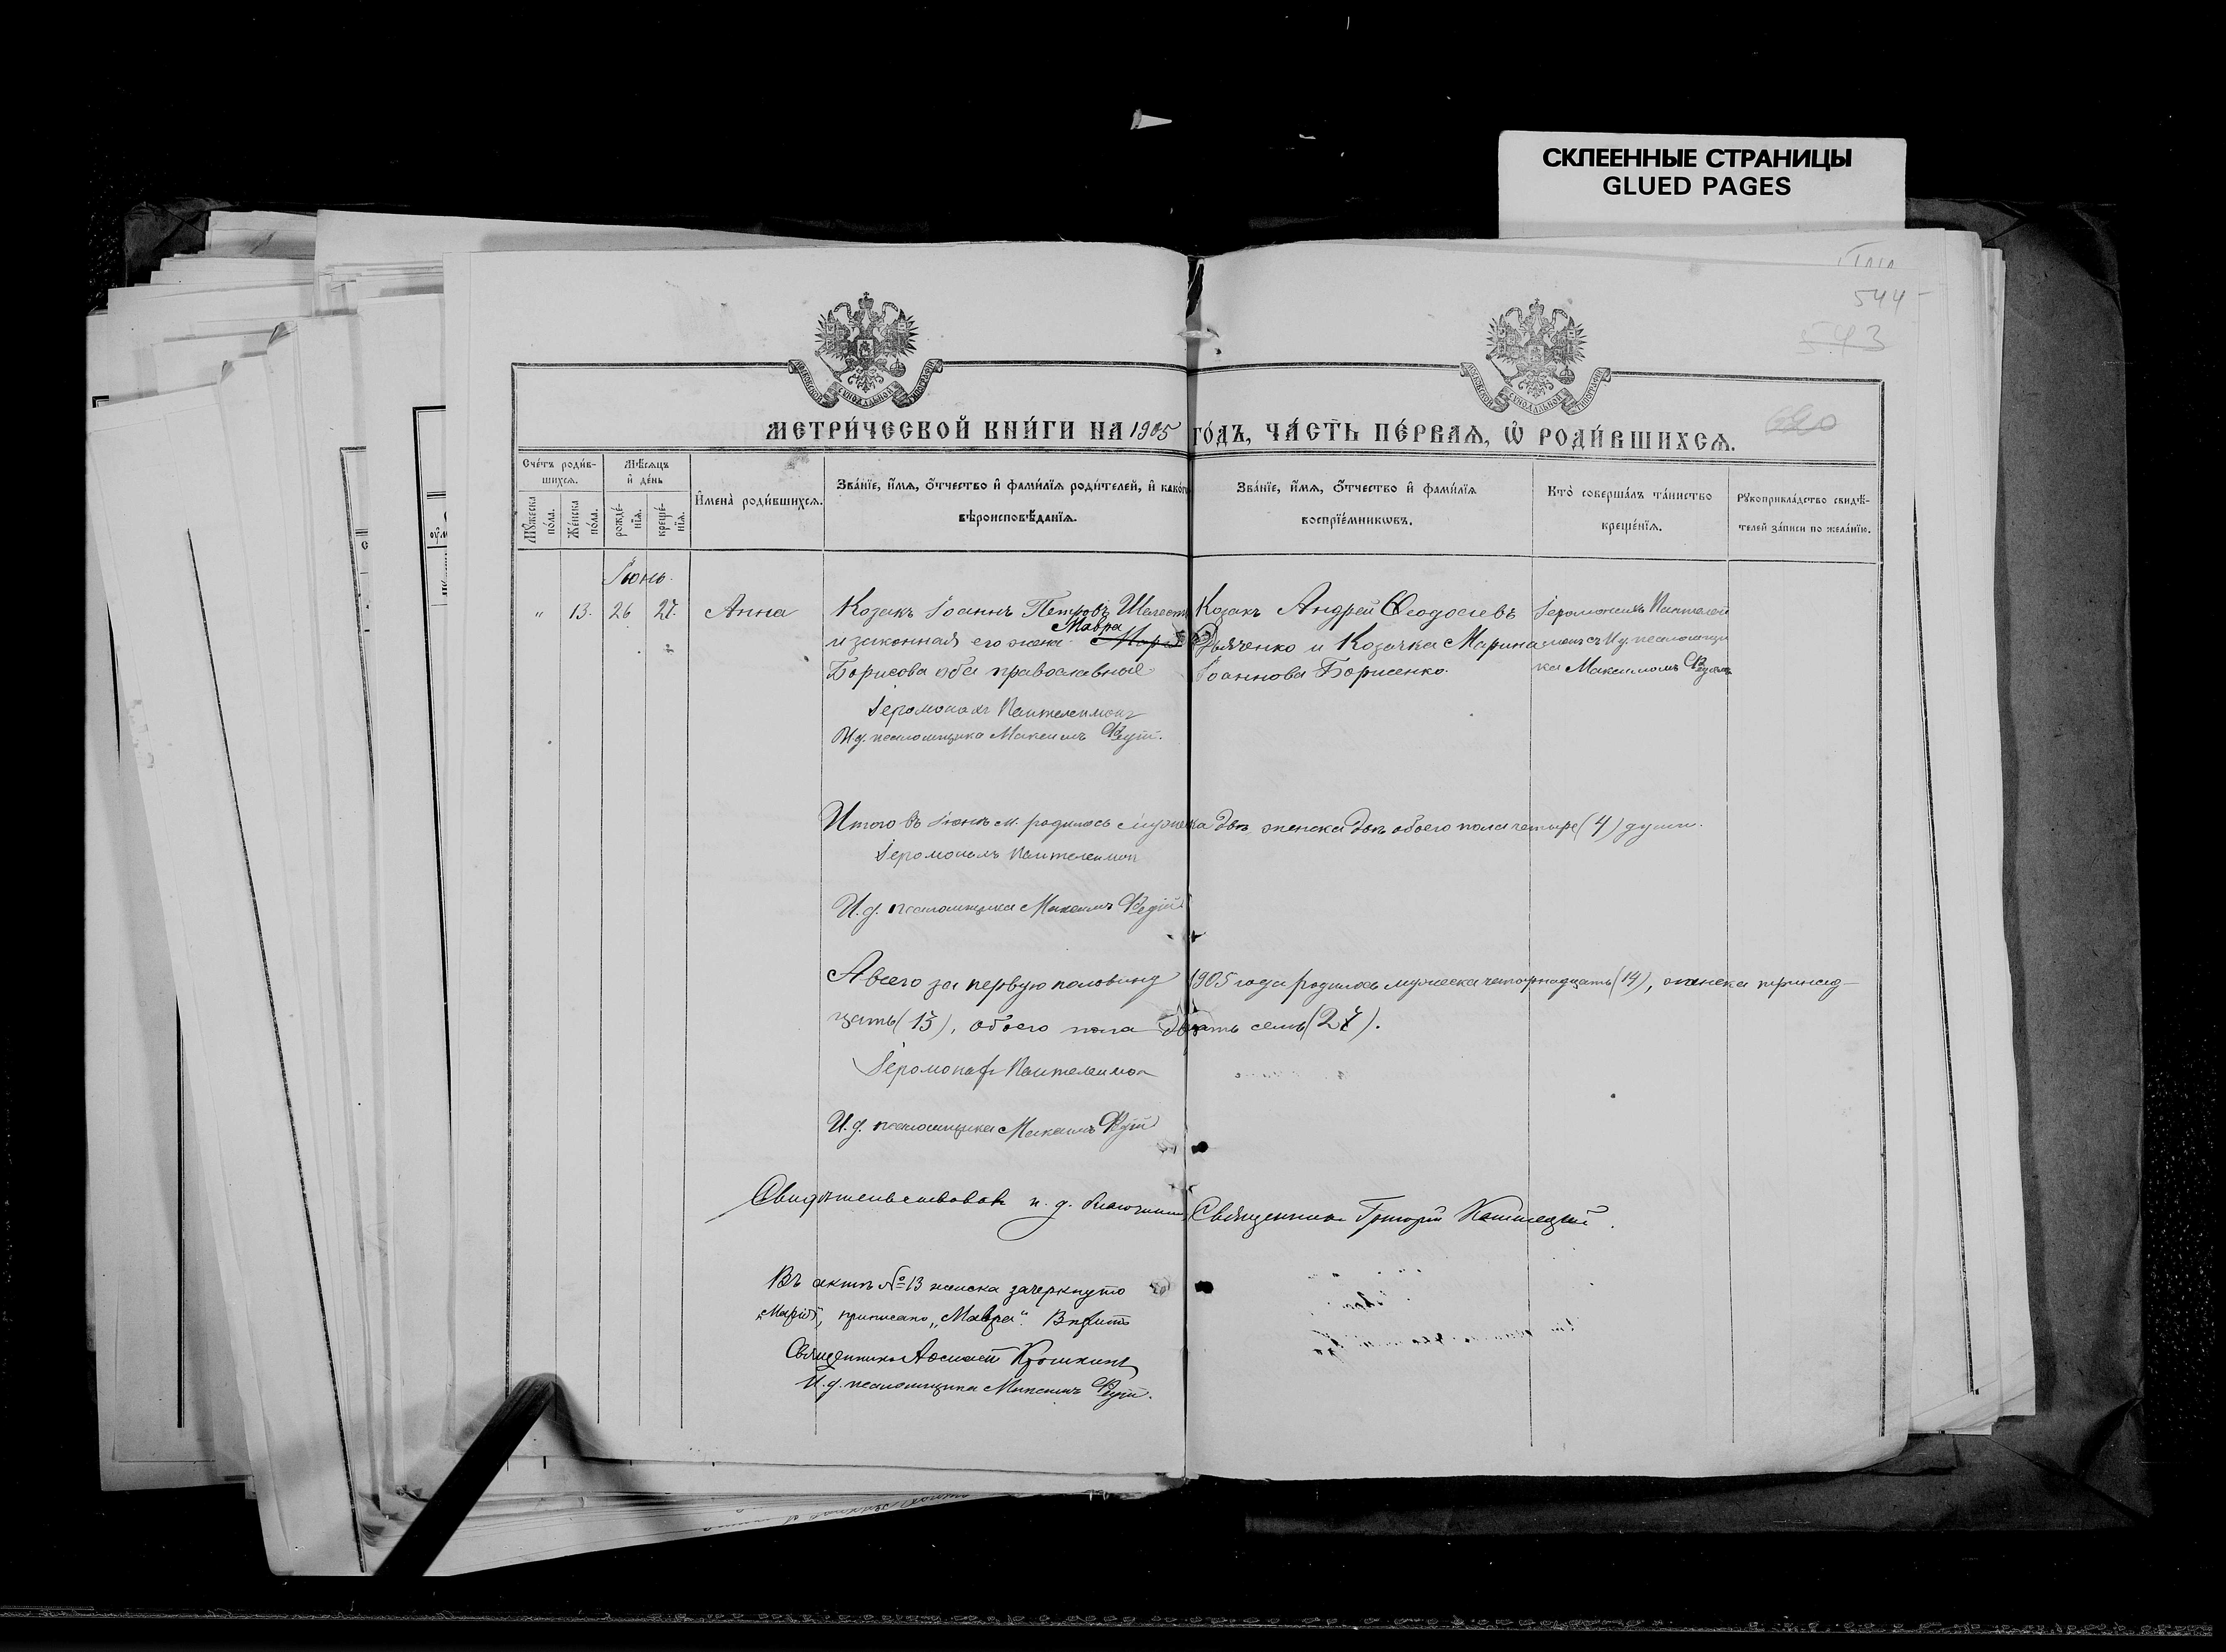 СКЛЕЕННЫЕ СТРАНИЦЫ
GLUED PAGES
544
543
МЕТРИ́ЧЕСКОЙ КНИ́ГИ НА 1905 ГО́ДЪ, ЧА́СТЬ ПЕ́РВАЯ, Ѡ҆ РОДИ́ВШИХСЯ.
Сче́тъ роди́в-
шихся.
Мѣ́сяцъ
и҆ де́нь
Мꙋ́жеска по́ла.
Же́нска по́ла.
рожде́-нїя.
креще́-нїя.
И҆мена̀ роди́вшихся.
Зва́нїе, и҆́мя, ѻ҆́тчество и҆ фами́лїя роди́телей, и҆ како́гѡ
вѣроисповѣ́данїя.
Зва́нїе, и҆́мя, ѻ҆́тчество и҆ фами́лїя
воспрїе́мникѡвъ.
Кто̀ соверша́лъ та́инство
креще́нїя.
Рꙋкоприкла́дство свидѣ́-
телей за́писи по жела́нїю.
Іюнь.
" 13. 26 27. Анна
Козакъ Іоаннъ Петровъ
и законная его жена Мавра
Борисова оба православные
Іеромонахъ Пантелеимонъ
И.д. псаломщика Максимъ
Козакъ Андрей Ѳеодосіевъ
Дьяченко и Козачка Марина
Іоаннова Борисенко.
Іеромонахъ Пантелей
монъ съ И.д. псаломщи
ка Максимомъ
Итого въ Іюнѣ м. родилось мужеска двѣ женска двѣ обоего пола четыре (4) души.
Іеромонахъ Пантелеимон
И.д. псаломщика Максимъ
А всего за первую половину 1905 года родилось мужеска четорнадцать (14), женска тринад-
цать (13), обоего пола двацать семь (27).
Іеромонахъ Пантелеимон
И.д. псаломщика Максимъ
Свидѣтельствовалъ и. д. благочиннаго Священникъ Григорій
Въ актѣ № 13 женска зачеркнуто
„Марія", приписано „Мавра". Вѣрить
Священникъ
И.д. псаломщика Максимъ